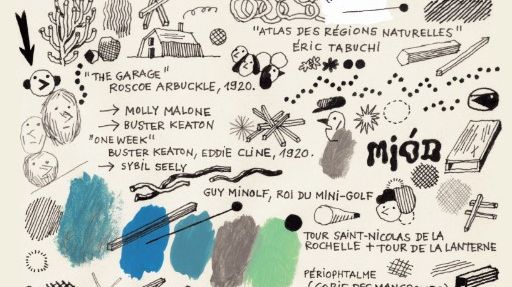 "ATLAS DES RÉGIONS NATURELLES"
ÉRIC TABUCHI
"THE GARAGE"
ROSCOE ARBUCKLE, 1920.
→ MOLLY MALONE
→ BUSTER KEATON
"ONE WEEK"
BUSTER KEATON, EDDIE CLINE, 1920.
→ SYBIL SEELY
MIÓD
GUY MINOLF, ROI DU MINI-GOLF
TOUR SAINT-NICOLAS DE LA
ROCHELLE + TOUR DE LA LANTERNE
PÉRIOPHTALME